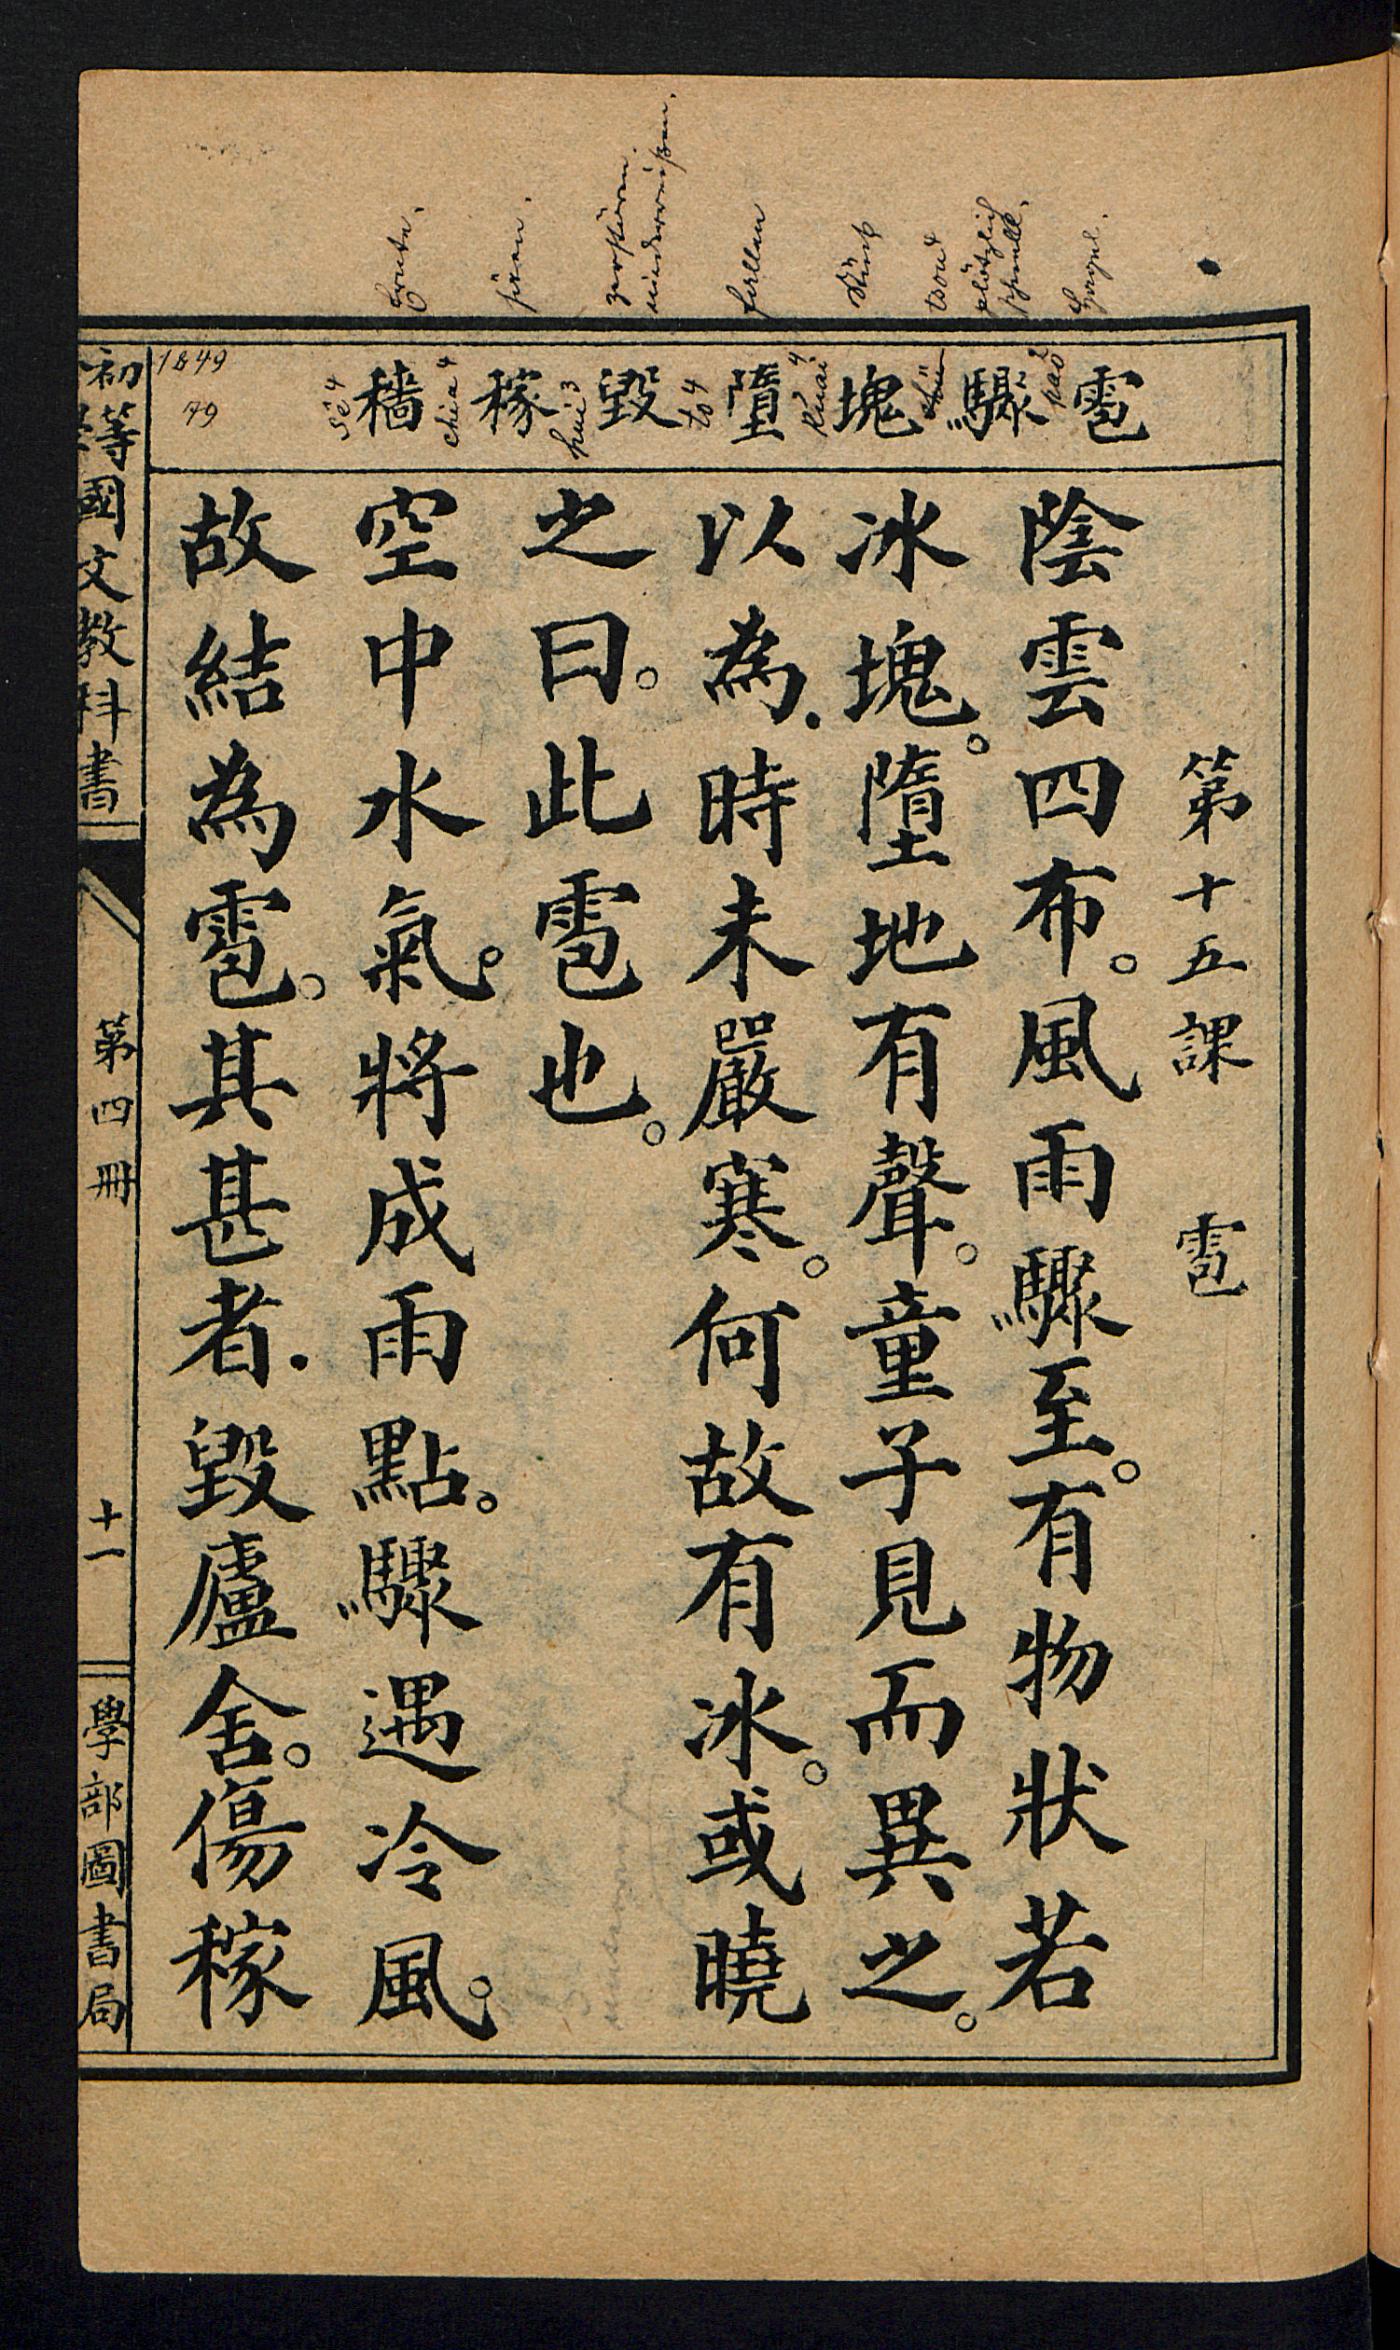 第十五課 雹
雹 驟 塊 墮 毀 稼 穡
陰雲四布。風雨驟至。有物狀若
冰塊。墮地有聲。童子見而異之。
以為.時未嚴寒。何故有冰。或曉
之曰。此雹也。
空中水氣。將成雨點。驟遇冷風。
故結為雹。其甚者.毀廬舍。傷稼
初等國文教科書
第四冊
十一
學部圖書局
Hagel.
plötzlich
schnell.
tsou4
Stück
fallen
zerstören.
niederreißen.
säen.
Ernte.
pao2
k'uai4
to4
hui3
chia4
sê4
1849
79